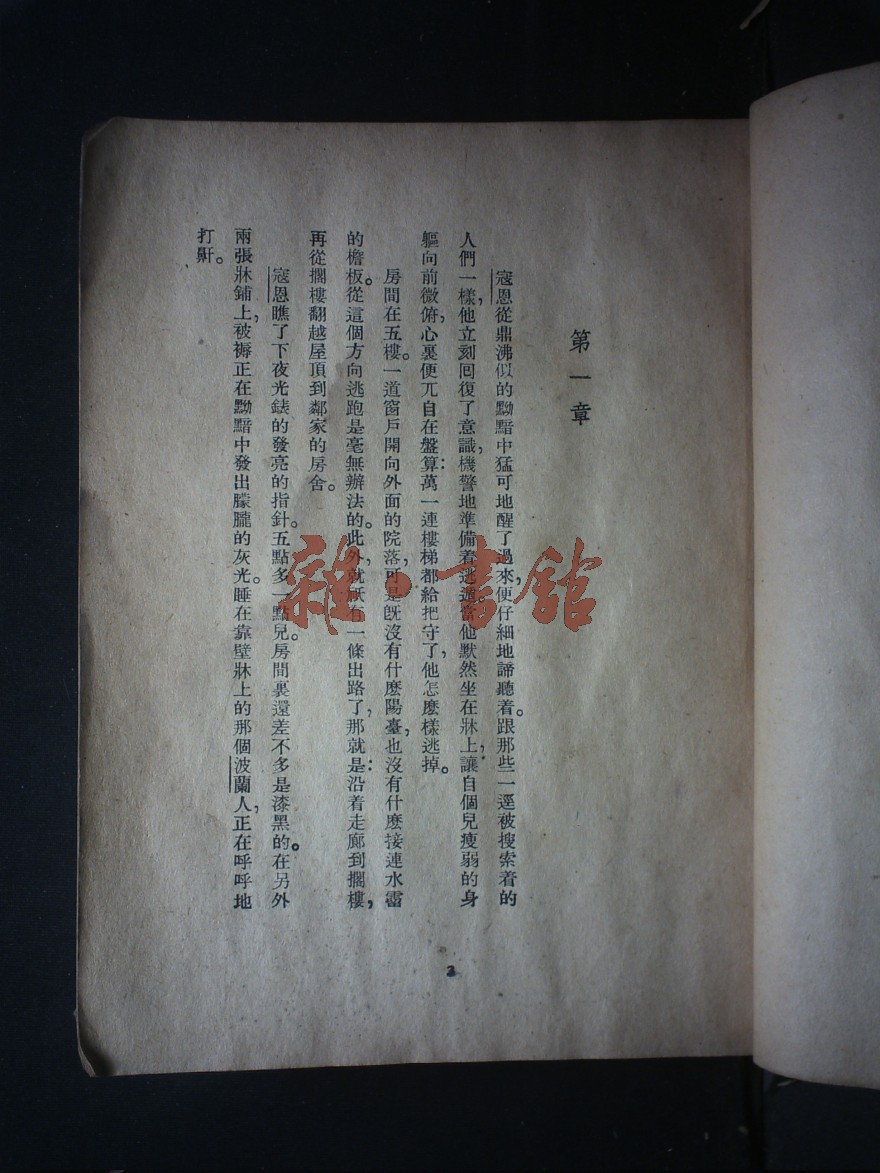 第一章
寇恩從鼎沸似的黝黯中猛可地醒了過來,便仔細地諦聽着。跟那些一逕被搜索着的
人們一樣,他立刻囘復了意識,機警地準備着逃遁。當他默然坐在牀上,讓自個兒瘦弱的身
軀向前微俯,心裏便兀自在盤算:萬一連樓梯都給把守了,他怎麽樣逃掉。
房間在五樓。一道窗戶開向外面的院落,可是旣沒有什麽陽臺,也沒有什麽接連水霤
的檐板。從這個方向逃跑是毫無辦法的。此外,就祇有一條出路了,那就是:沿着走廊到擱樓,
再從擱樓翻越屋頂到鄰家的房舍。
寇恩瞧了下夜光錶的發亮的指針。五點多一點兒。房間裏還差不多是漆黑的。在另外
兩張牀鋪上,被褥正在黝黯中發出朦朧的灰光。睡在靠壁牀上的那個波蘭人,正在呼呼地
打鼾。
3
雜·書館